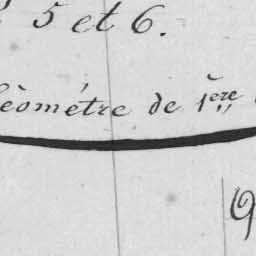 5 et 6.
éométre de 1ère
9